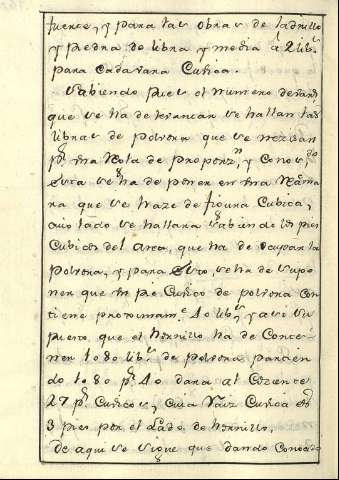 fuerte, y para las obras de ladrillo
y piedra de libra y media à 2 lib.ˢ
para cada vara Cubica.
Sabiendo pues el numero de varas,
que se ha de arrancar se hallan las
libras de polvora que se necesitan
p.ʳ una Regla de proporz.ⁿ y Conos.ᵈᵒ
esta se ha de poner en una Recama
ra que se haze de figura Cubica,
cuio lado se hallara sabiendo los pies
Cubicos del area, que ha de ocupar la
Polvora, y para esto se ha de supo
ner que un pie Cubico de polvora con
tiene proximam.ᵉ 40 lib.ˢ y assi su
puesto que el hornillo ha de Conte-
ner 1080 lib.ˢ de polvora partien
do 1080 p.ʳ 40 dara al Cociente
27 p.ˢ Cubicos, cuia Raiz Cubica es
3 pies por el lado de hornillo.
De aqui se sigue que dando Conocido